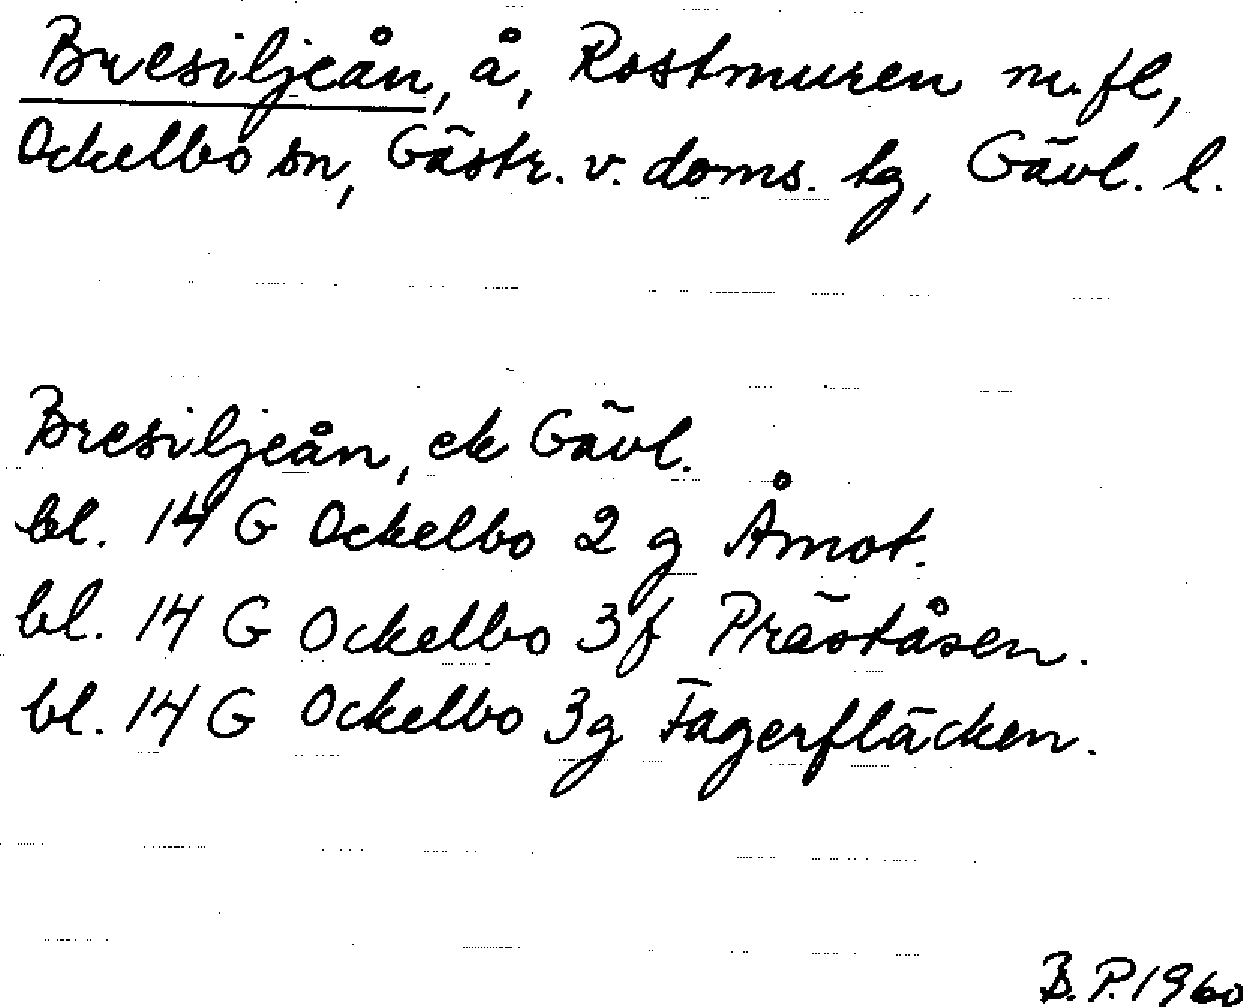 Bresiljeån, å, Rostmuren m.fl,
Ockelbo sn, Gästr. v. doms. tg, Gävl. l.
Bresiljeån, ek Gävl.
bl. 14 G Ockelbo 2 g Åmot.
bl. 14 G Ockelbo 3 f Präståsen.
bl. 14 G Ockelbo 3g Fagerfläcken.
B.P. 1960